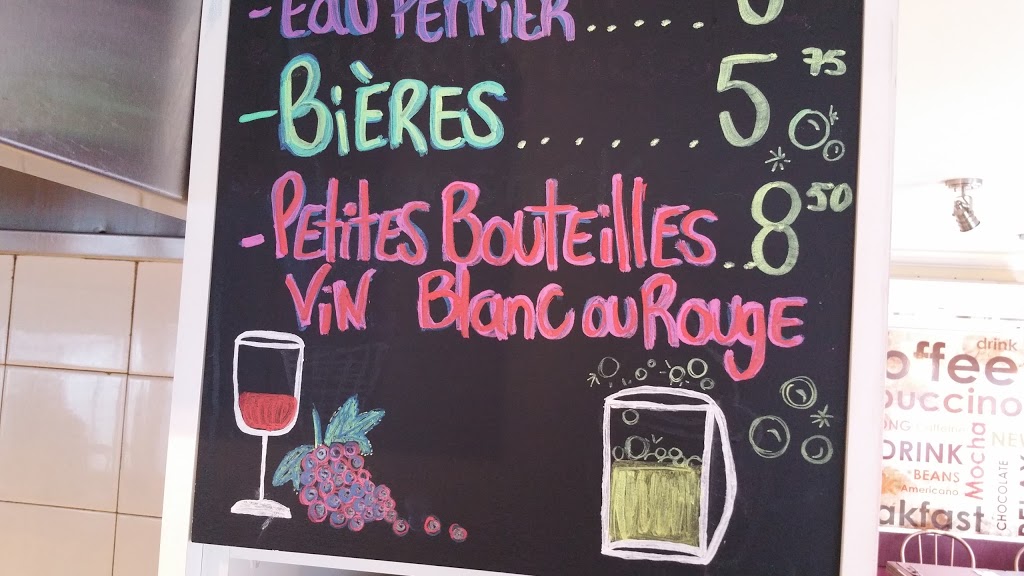 - EAU PERRIER.....
- BIÈRES...... 5 75
- PETITES BOUTEILLES... 8 50
VIN BLANC OU ROUGE
drink
offee
puccino
DRINK
Mocha
BEANS
Americano
CHOCOLATE
akfast